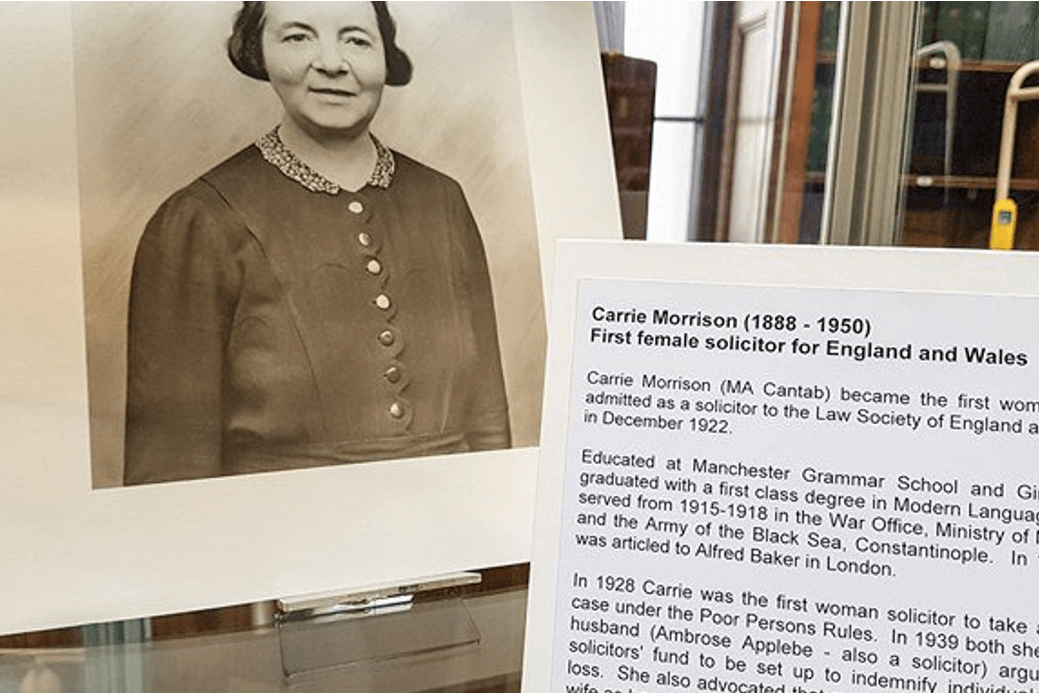 Carrie Morrison (1888 - 1950)
First female solicitor for England and Wales
Carrie Morrison (MA Cantab) became the first wom
admitted as a solicitor to the Law Society of England a
in December 1922.
Educated at Manchester Grammar School and Gi
graduated with a first class degree in Modern Languag
served from 1915-1918 in the War Office, Ministry of
and the Army of the Black Sea, Constantinople. In
was articled to Alfred Baker in London.
In 1928 Carrie was the first woman solicitor to take
case under the Poor Persons Rules. In 1939 both she
husband (Ambrose Applebe - also a solicitor) argu
solicitors' fund to be set up to indemnify individual
loss. She also advocated that
wife